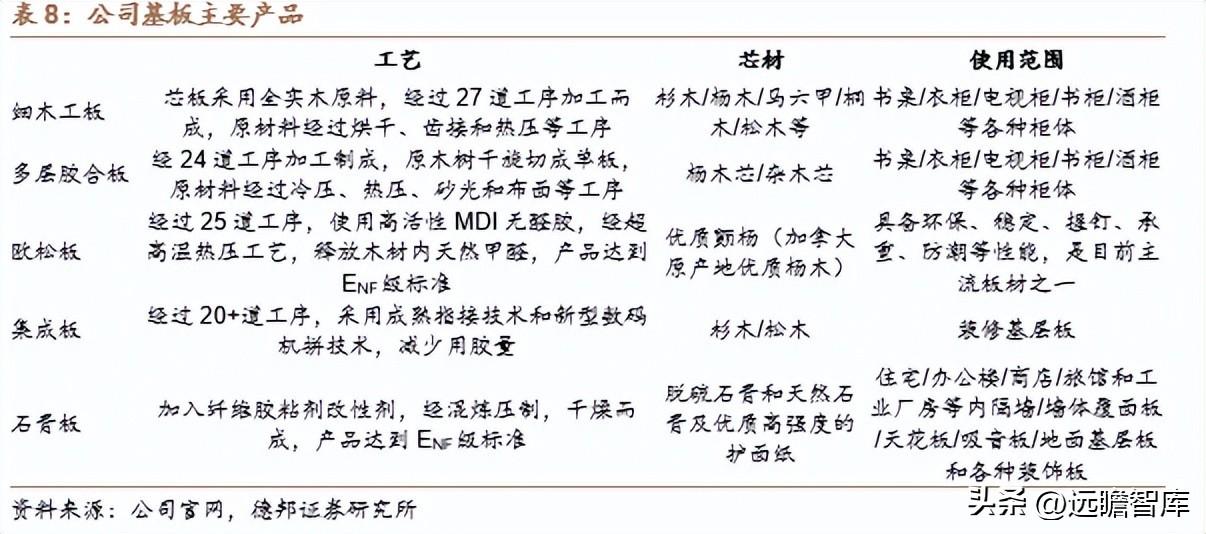 表 8：公司基板主要产品
工艺 芯材 使用范围
细木工板 芯板采用全实木原料，经过 27 道工序加工而 杉木/杨木/马六甲/桐 书桌/衣柜/电视柜/书柜/酒柜
成，原材料经过烘干、齿接和热压等工序 木/松木等 等各种柜体
多层胶合板 经 24 道工序加工制成，原木树干旋切成单板， 杨木芯/杂木芯 书桌/衣柜/电视柜/书柜/酒柜
原材料经过冷压、热压、砂光和布面等工序 等各种柜体
欧松板 经过 25 道工序，使用高活性 MDI 无醛胶，经超 优质颤杨（加拿大 具备环保、稳定、握钉、承
高温热压工艺，释放木材内天然甲醛，产品达到 原产地优质杨木） 重、防潮等性能，是目前主
ENF 级标准 流板材之一
集成板 经过 20+道工序，采用成熟指接技术和新型数码 杉木/松木 装修基层板
机拼技术，减少用胶量
石膏板 加入纤维胶粘剂改性剂，经混炼压制，干燥而 脱硫石膏和天然石 住宅/办公楼/商店/旅馆和工
成，产品达到 ENF 级标准 膏及优质高强度的 业厂房等内隔墙/墙体覆面板
护面纸 /天花板/吸音板/地面基层板
和各种装饰板
资料来源：公司官网，德邦证券研究所
头条 @远瞻智库